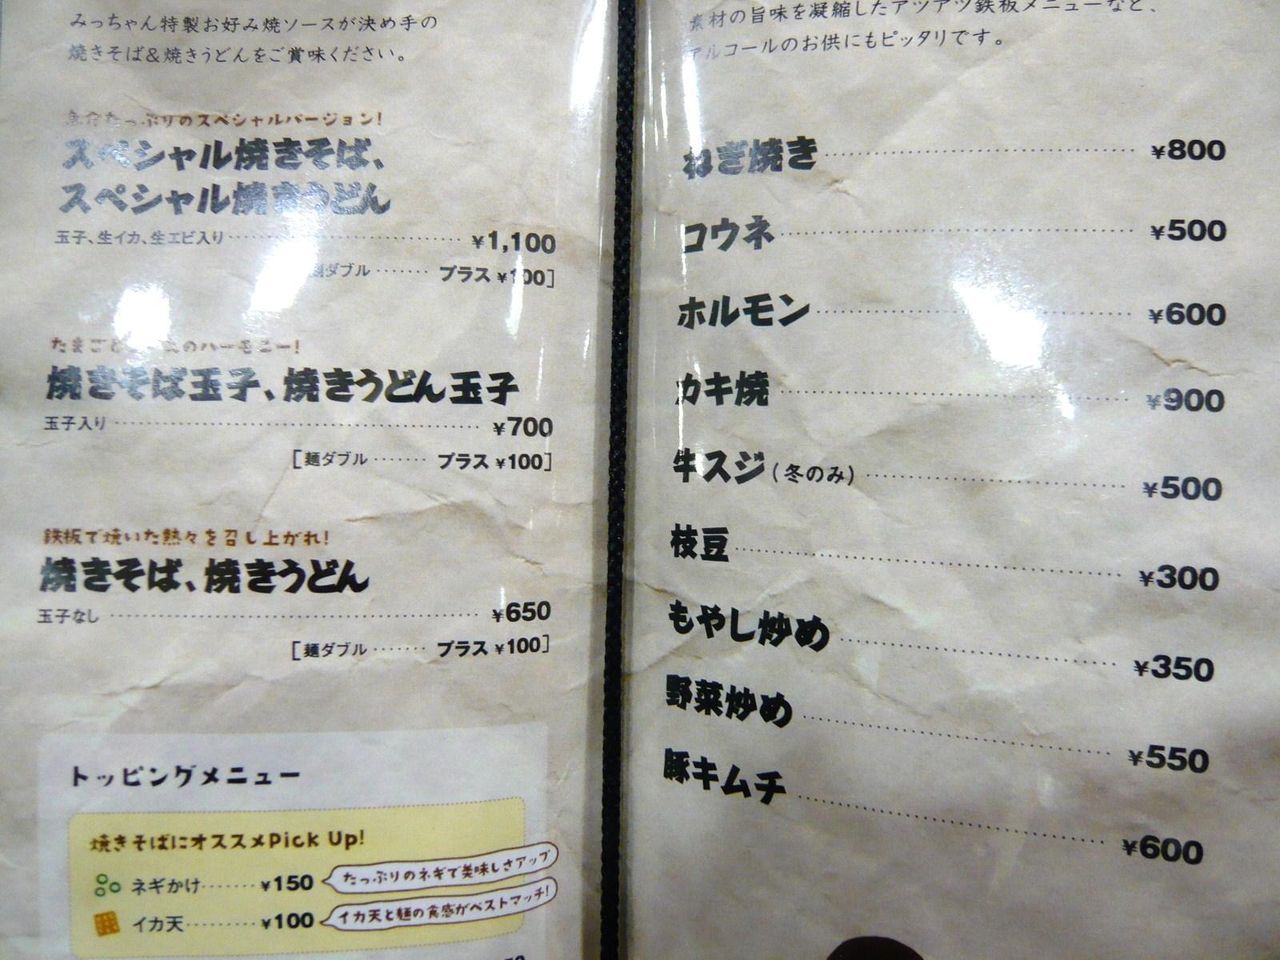 みっちゃん特製お好み焼ソースが決め手の
焼きそば&焼きうどんをご賞味ください。
魚介たっぷりのスペシャルバージョン!
スペシャル焼きそば、
スペシャル焼きうどん
玉子、生イカ、生エビ入り ¥1,100
麺ダブル プラス ¥100]
たまごと のハーモニー!
焼きそば玉子、焼きうどん玉子
玉子入り ¥700
[麺ダブル プラス ¥100]
鉄板で焼いた熱々を召し上がれ!
焼きそば、焼きうどん
玉子なし ¥650
[麺ダブル プラス ¥100]
トッピングメニュー
焼きそばにオススメPick Up!
ネギかけ ¥150 たっぷりのネギで美味しさアップ
イカ天 ¥100 イカ天と麺の食感がベストマッチ!
素材の旨味を凝縮したアツアツ鉄板メニューなど、
アルコールのお供にもピッタリです。
ねぎ焼き ¥800
コウネ ¥500
ホルモン ¥600
カキ焼 ¥900
牛スジ(冬のみ) ¥500
枝豆 ¥300
もやし炒め ¥350
野菜炒め ¥550
豚キムチ ¥600